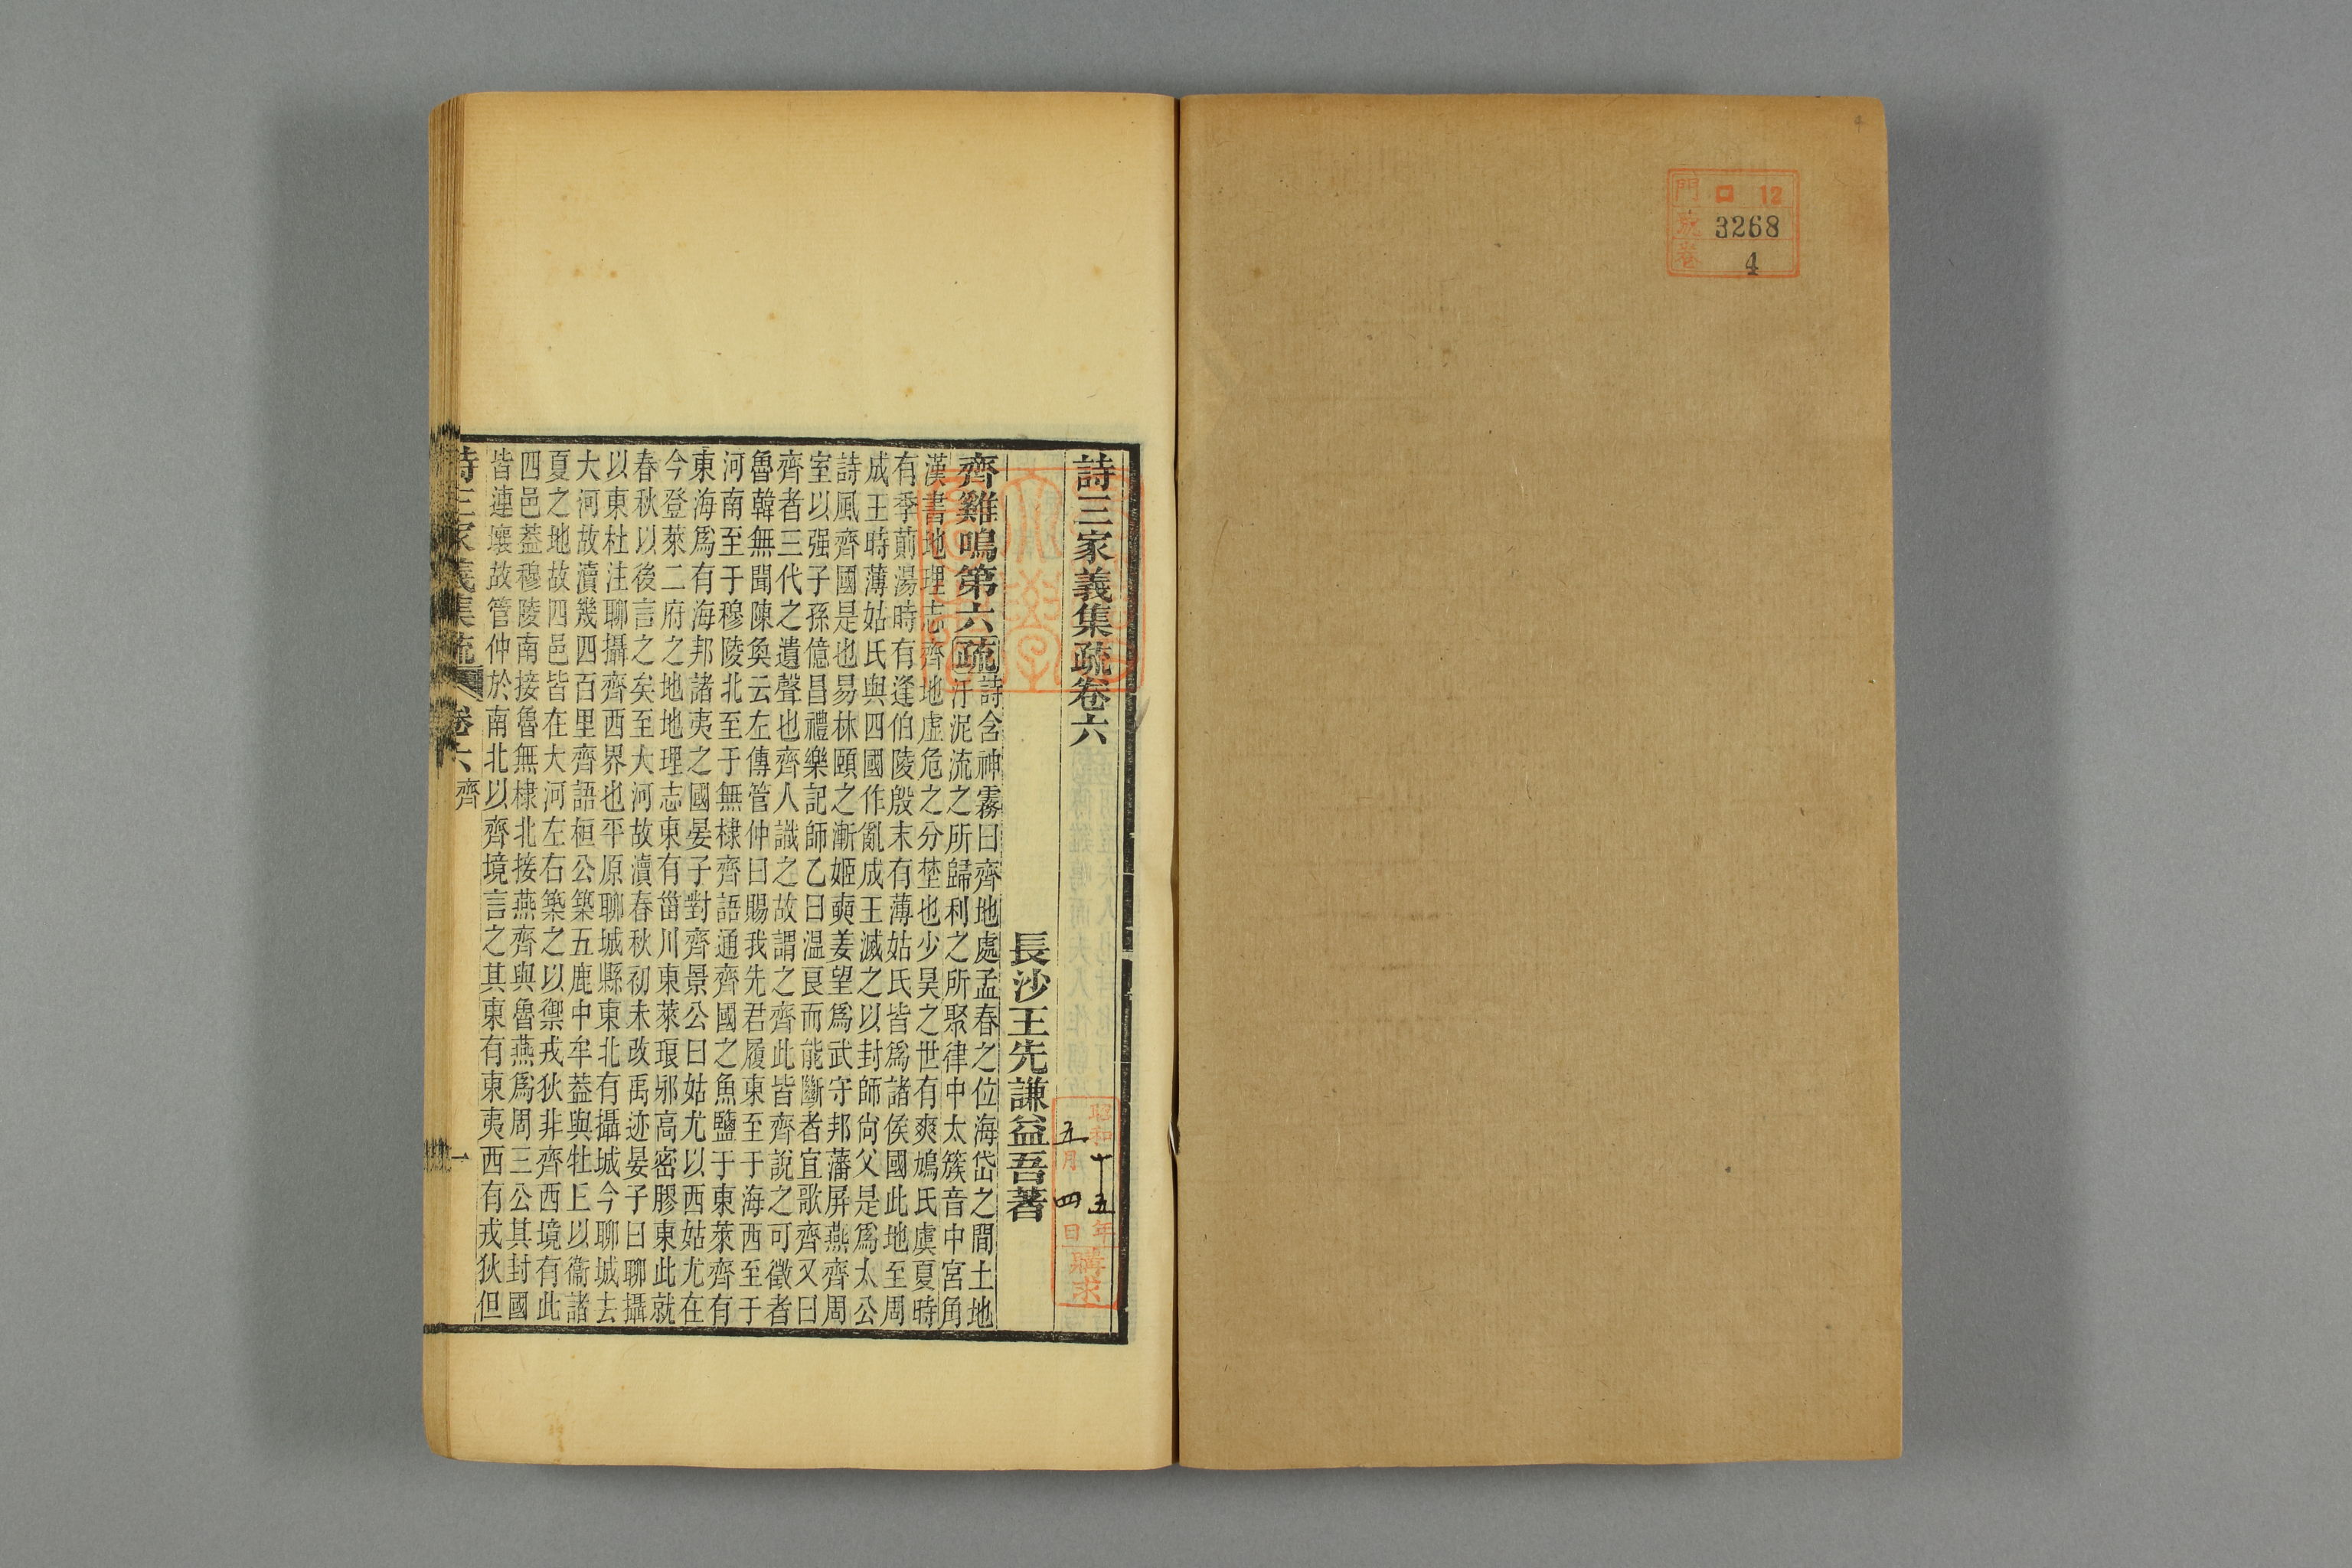 門 口 12
號 3268
卷 4
詩三家義集疏卷六
昭和十五年
五月四日
購求
長沙王先謙益吾著
齊雞鳴第六疏
詩含神霧曰齊地處孟春之位海岱之間土地
汙泥流之所歸利之所聚律中太簇音中宮角
漢書地理志齊地虛危之分埜也少昊之世有爽鳩氏虞夏時
有季萴湯時有逢伯陵殷末有薄姑氏皆爲諸侯國此地至周
成王時薄姑氏與四國作亂成王滅之以封師尙父是爲太公
詩風齊國是也易林頤之漸姬奭姜望爲武守邦藩屏燕齊周
室以强子孫億昌禮樂記師乙曰温良而能斷者宜歌齊又曰
齊者三代之遺聲也齊人識之故謂之齊此皆齊說之可徵者
魯韓無聞陳奐云左傳管仲曰賜我先君履東至于海西至于
河南至于穆陵北至于無棣齊語通齊國之魚鹽于東萊齊有
東海爲有海邦諸夷之國晏子對齊景公曰姑尤以西姑尤在
今登萊二府之地地理志東有甾川東萊琅邪高密膠東此就
春秋以後言之矣至大河故瀆春秋初未改禹迹晏子曰聊攝
以東杜注聊攝齊西界也平原聊城縣東北有攝城今聊城去
大河故瀆幾四百里齊語桓公築五鹿中牟葢與牡丘以衞諸
夏之地故四邑皆在大河左右築之以禦戎狄非齊西境有此
四邑葢穆陵南接魯無棣北接燕齊與魯燕爲周三公其封國
皆連壤故管仲於南北以齊境言之其東有東夷西有戎狄但
詩三家義集疏 卷六 齊 一